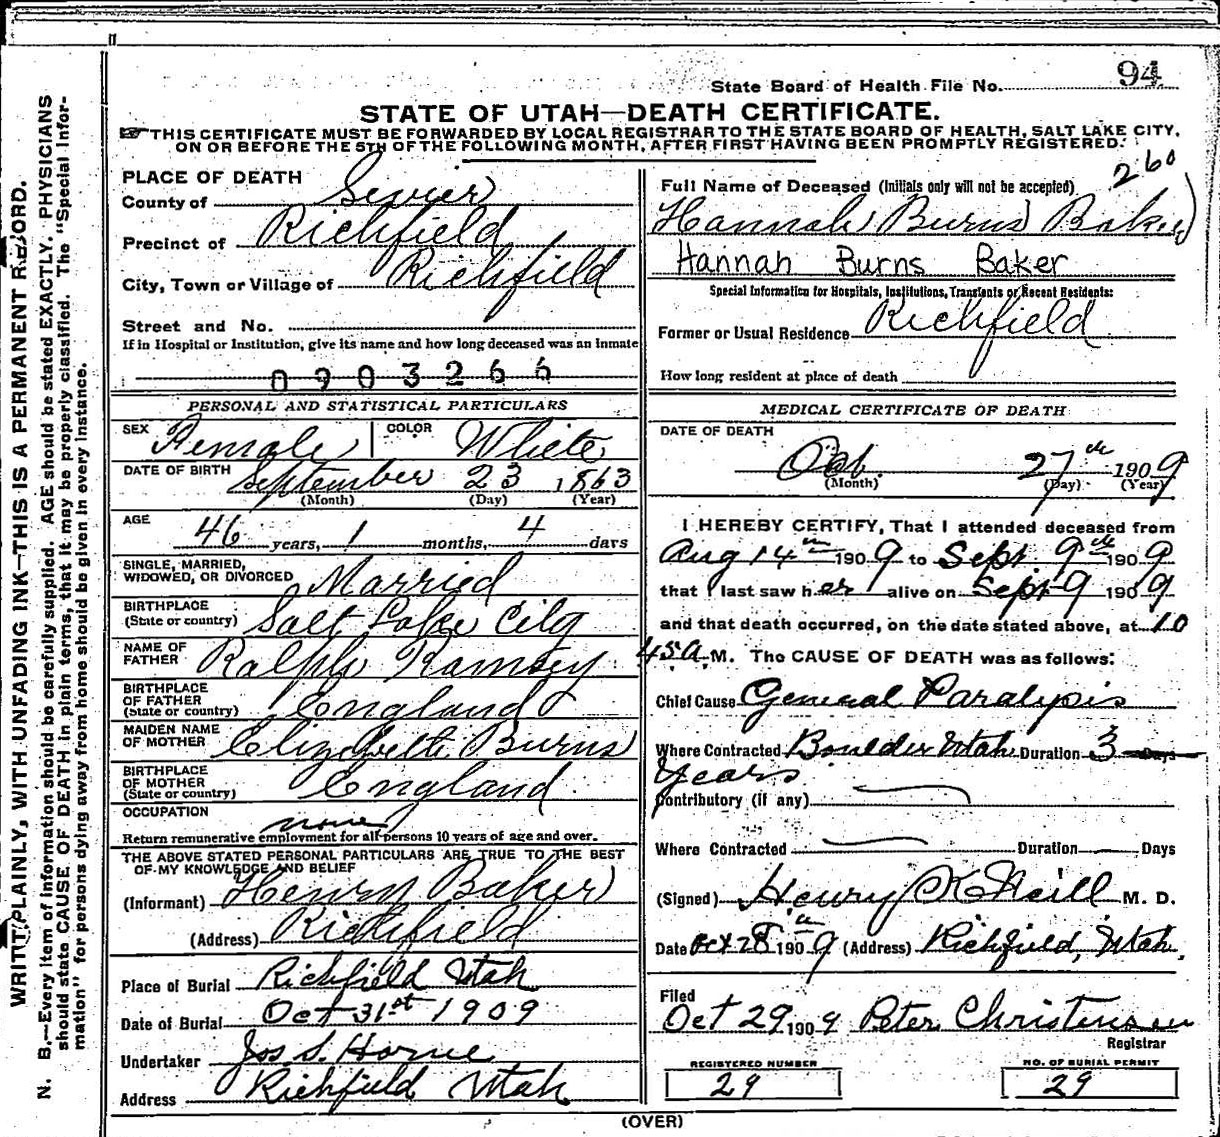 94
State Board of Health File No.
STATE OF UTAH—DEATH CERTIFICATE.
THIS CERTIFICATE MUST BE FORWARDED BY LOCAL REGISTRAR TO THE STATE BOARD OF HEALTH, SALT LAKE CITY,
ON OR BEFORE THE 5TH OF THE FOLLOWING MONTH, AFTER FIRST HAVING BEEN PROMPTLY REGISTERED.
260
PLACE OF DEATH
County of Sevier
Precinct of Richfield
City, Town or Village of Richfield
Street and No.
If in Hospital or Institution, give its name and how long deceased was an inmate
0903266
Full Name of Deceased (Initials only will not be accepted)
Hannah Burns Baker
Hannah Burns Baker
Special Information for Hospitals, Institutions, Transients or Recent Residents:
Former or Usual Residence Richfield
How long resident at place of death
PERSONAL AND STATISTICAL PARTICULARS
SEX Female COLOR White
DATE OF BIRTH September 23 1863
(Month) (Day) (Year)
AGE
46 years, 1 months, 4 days
SINGLE, MARRIED,
WIDOWED, OR DIVORCED Married
BIRTHPLACE
(State or country) Salt Lake City
NAME OF
FATHER Ralph Ramsey
BIRTHPLACE
OF FATHER
(State or country) England
MAIDEN NAME
OF MOTHER Elizabeth Burns
BIRTHPLACE
OF MOTHER
(State or country) England
OCCUPATION
none
Return remunerative employment for all persons 10 years of age and over.
THE ABOVE STATED PERSONAL PARTICULARS ARE TRUE TO THE BEST
OF MY KNOWLEDGE AND BELIEF
(Informant) Henry Baker
(Address) Richfield
Place of Burial Richfield Utah
Date of Burial Oct 31st 1909
Undertaker Jos S. Horne
Address Richfield Utah
MEDICAL CERTIFICATE OF DEATH
DATE OF DEATH
Oct. 27th 1909
(Month) (Day) (Year)
I HEREBY CERTIFY, That I attended deceased from
Aug 14th 1909 to Sept. 9th 1909
that I last saw her alive on Sept 9 1909
and that death occurred, on the date stated above, at 10
45 A.M. The CAUSE OF DEATH was as follows:
Chief Cause General Paralysis
Where Contracted Boulder Utah Duration 3 Days
Years
Contributory (if any)
Where Contracted Duration Days
(Signed) Henry K Neill M. D.
Date Oct 28th 1909 (Address) Richfield, Utah.
Filed
Oct 29 1909 Peter Christensen
Registrar
REGISTERED NUMBER
29
NO. OF BURIAL PERMIT
29
(OVER)
WRITE PLAINLY, WITH UNFADING INK—THIS IS A PERMANENT RECORD.
N. B.—Every item of information should be carefully supplied. AGE should be stated EXACTLY. PHYSICIANS
should state CAUSE OF DEATH in plain terms, that it may be properly classified. The "Special Infor-
mation" for persons dying away from home should be given in every instance.